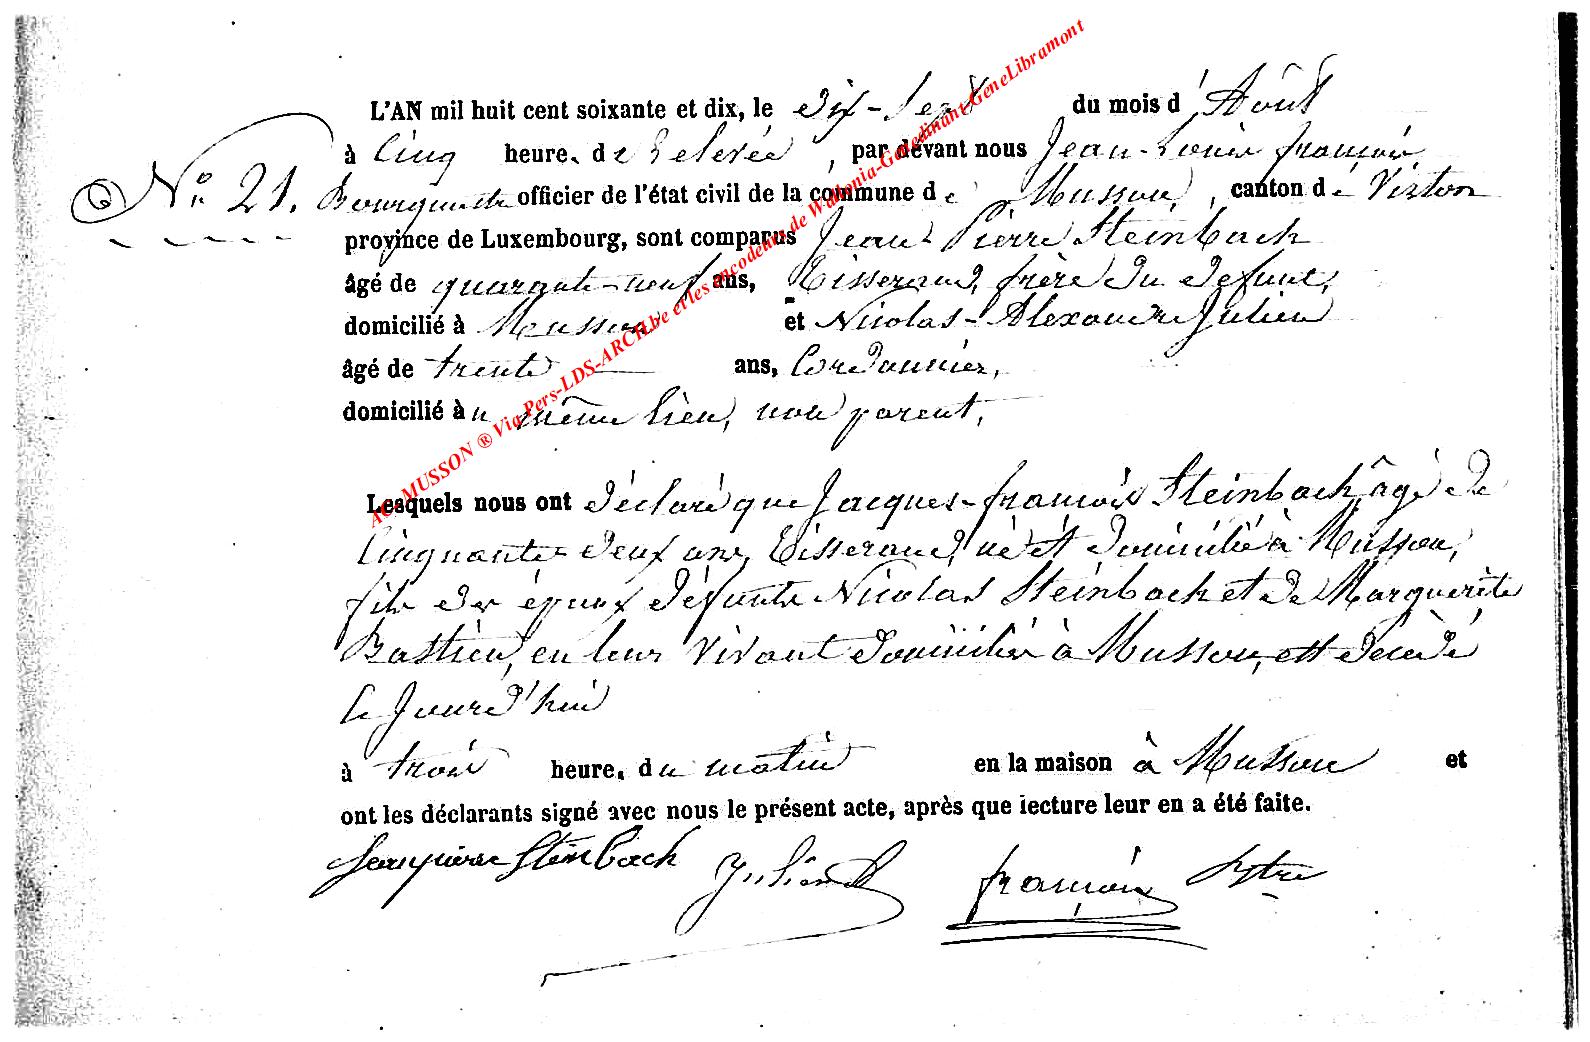 L'AN mil huit cent soixante et dix, le dix-sept du mois d'Août
à cinq heure. de relevée, par devant nous Jean-Louis François,
N° 21. Bourgmestre officier de l'état civil de la commune de Musson, canton de Virton
province de Luxembourg, sont comparus Jean Pierre Steinbach
âgé de quarante-neuf ans, Tisserand, frère du defunt,
domicilié à Musson et Nicolas-Alexandre Julien
âgé de trente ans, Cordonnier,
domicilié àu même lieu, non parent,
Lesquels nous ont déclaré que Jacques-françois Steinbach âgé de
Cinquante deux ans, Tisserand, né et domicilié à Musson,
fils des époux défunts Nicolas Steinbach et de Marguerite
Bastien, en leur vivant domiciliés à Musson, est décédé
le jourd'hui
à trois heure. du matin en la maison à Musson et
ont les déclarants signé avec nous le présent acte, après que lecture leur en a été faite.
Jeanpierre Steinbach Julien françois
AC-MUSSON ® Via Pers-LDS-ARCH.be et les encodeurs de Wallonia-Genedinant-GeneLibramont